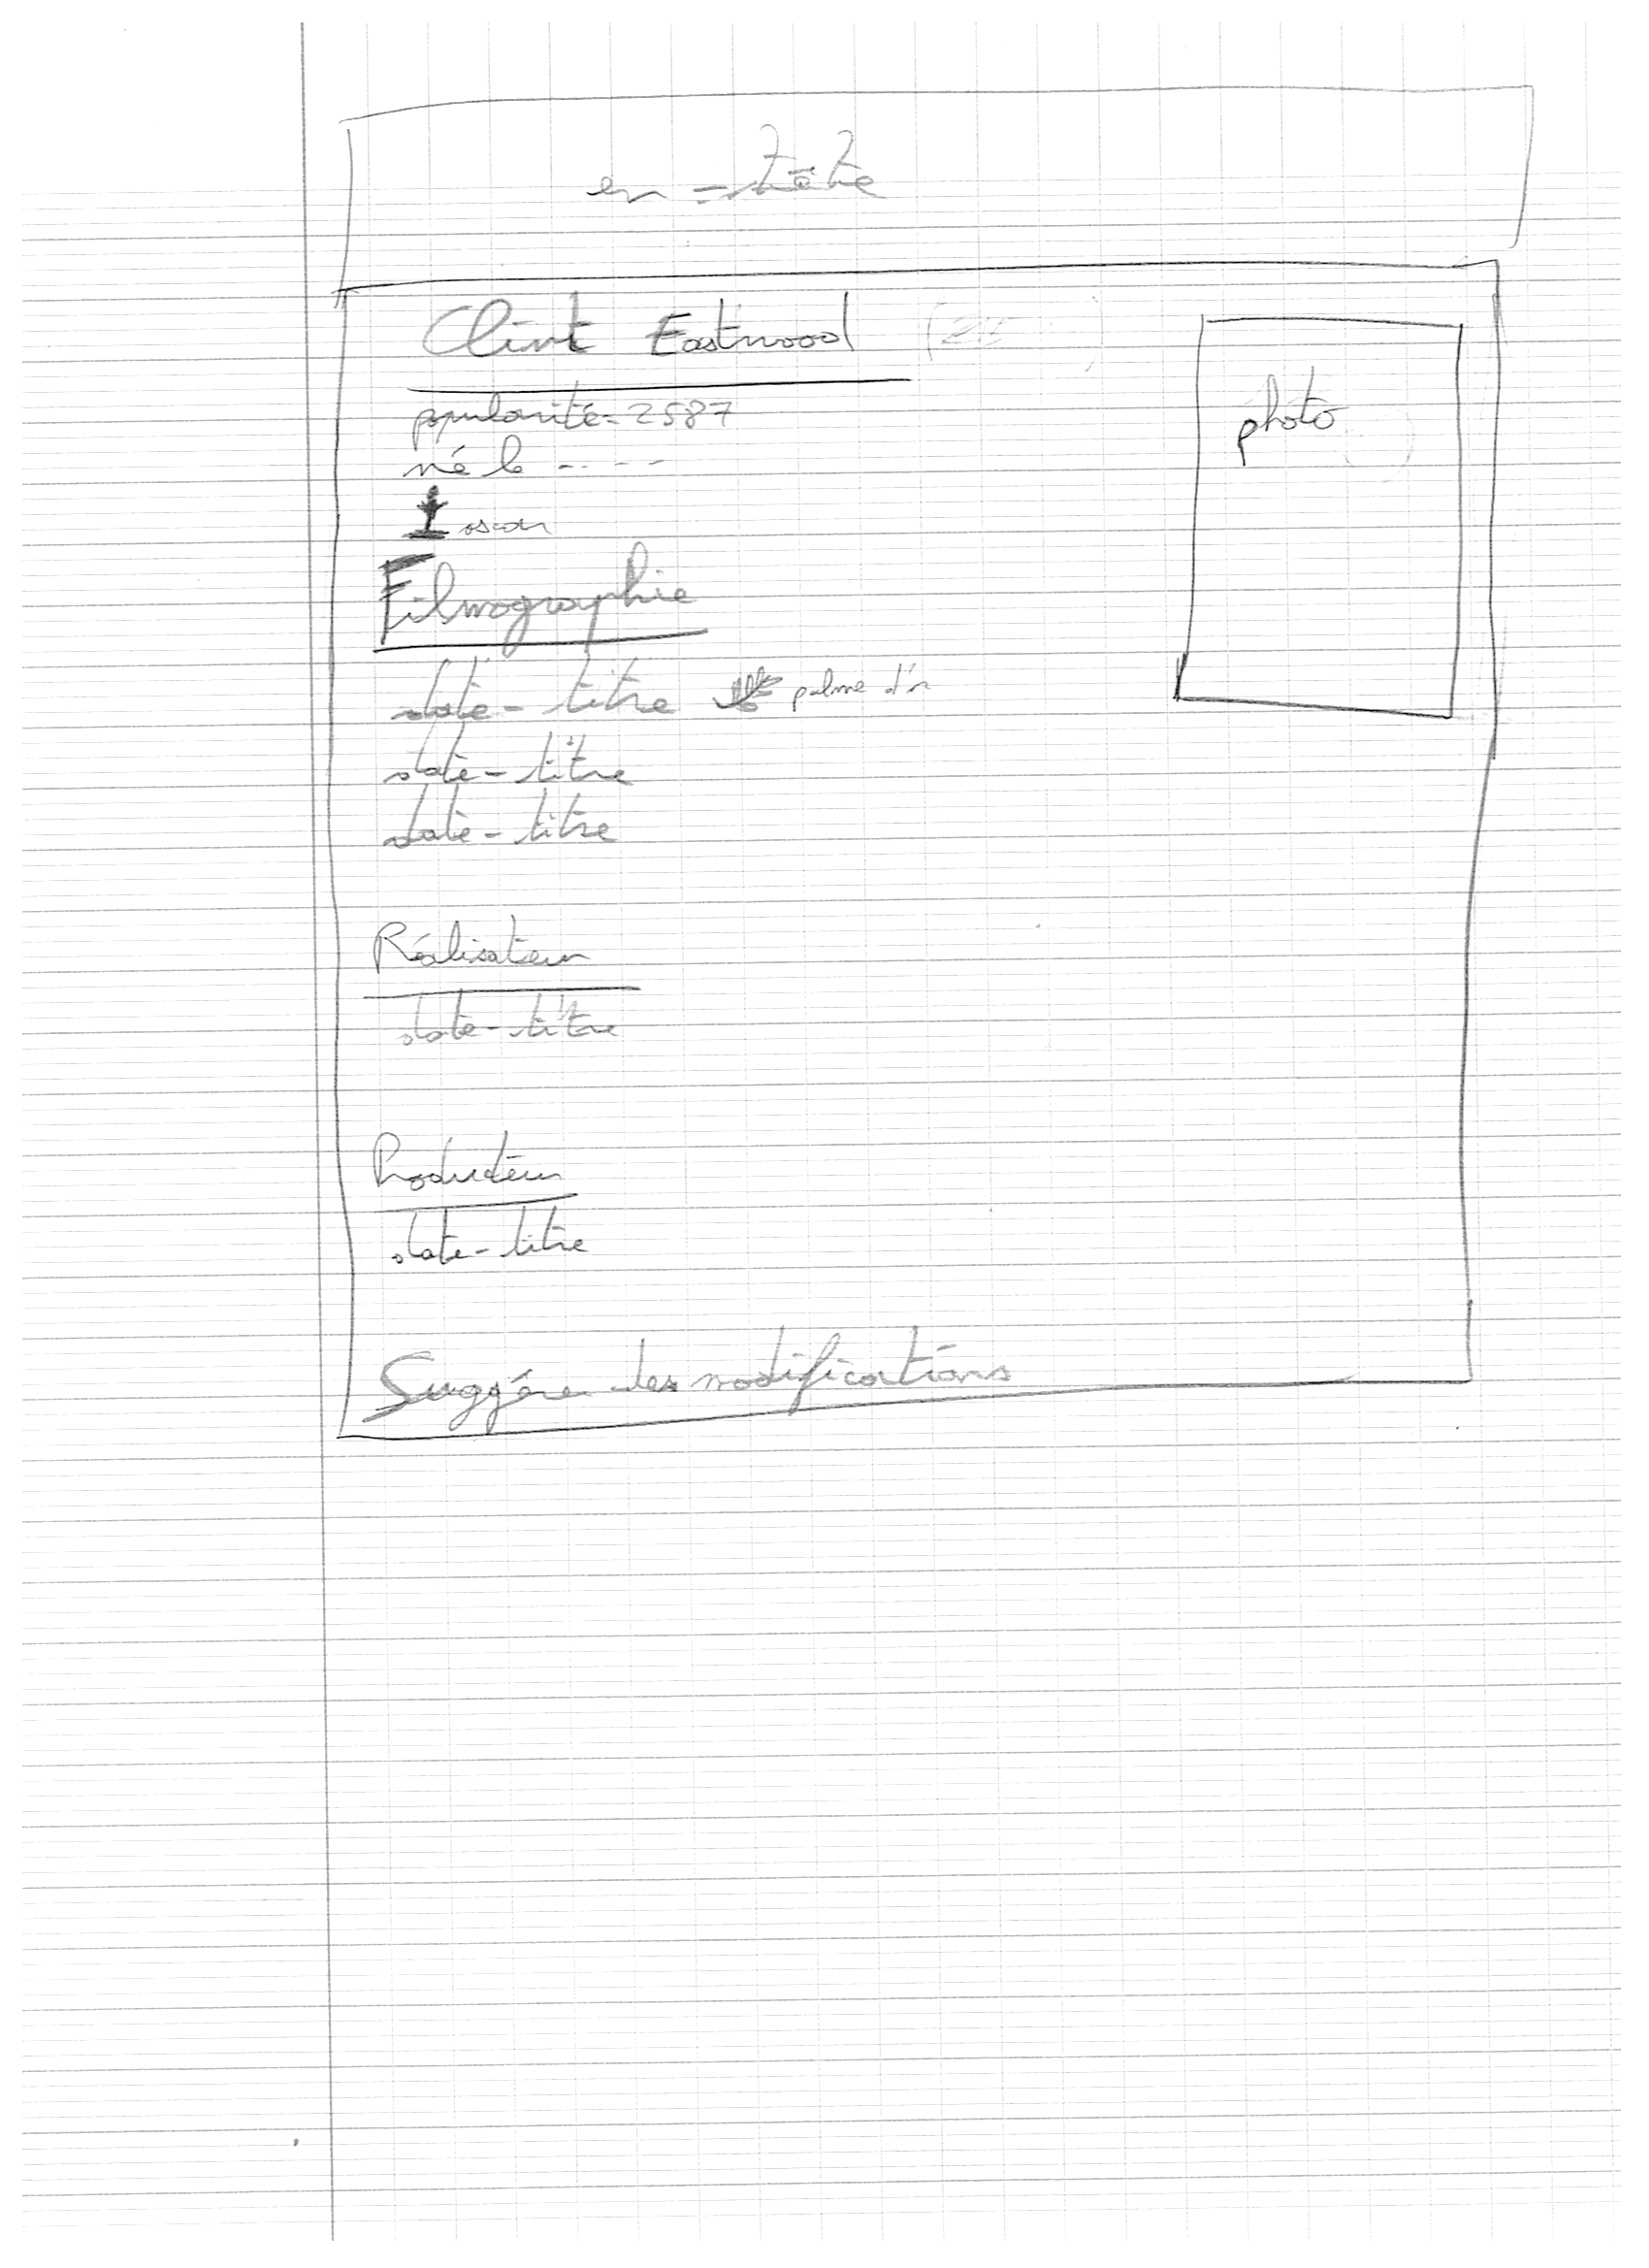 en-tête
Clint Eastwood
photo
popularité = 2587
né le -----
oscar
Filmographie
date - titre palme d'or
date - titre
date - titre
Réalisateur
date - titre
Producteur
date - titre
Suggérer des modifications